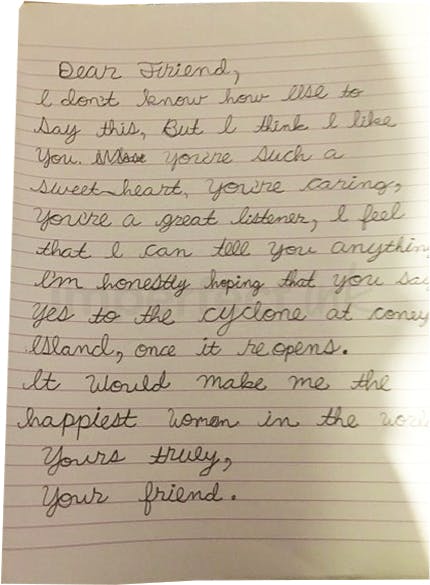 Dear Friend,
I don't know how else to
say this, But I think I like
You. You're such a
sweet-heart, You're caring,
You're a great listener, I feel
that I can tell you anything
I'm honestly hoping that you say
Yes to the cyclone at coney
Island, once it reopens.
It would make me the
happiest women in the
Yours truly,
Your friend.